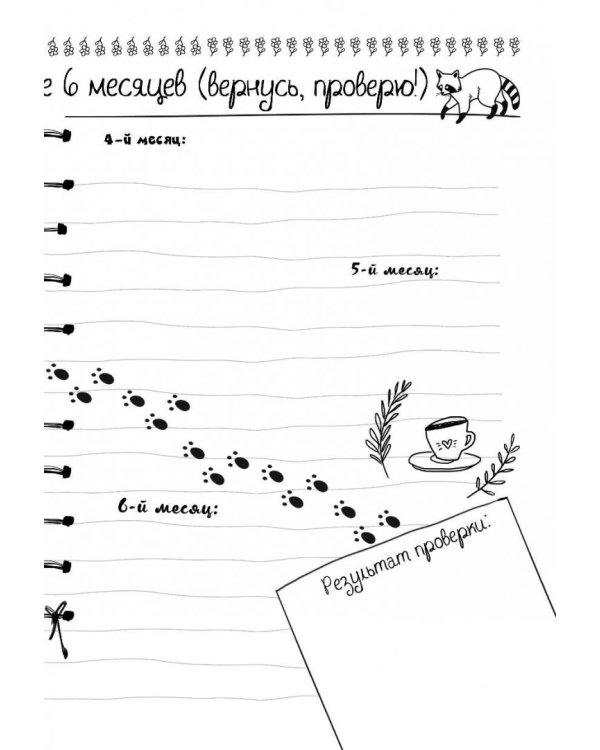 е 6 месяцев (вернусь, проверю!)
4-й месяц:
5-й месяц:
6-й месяц:
Результат проверки: